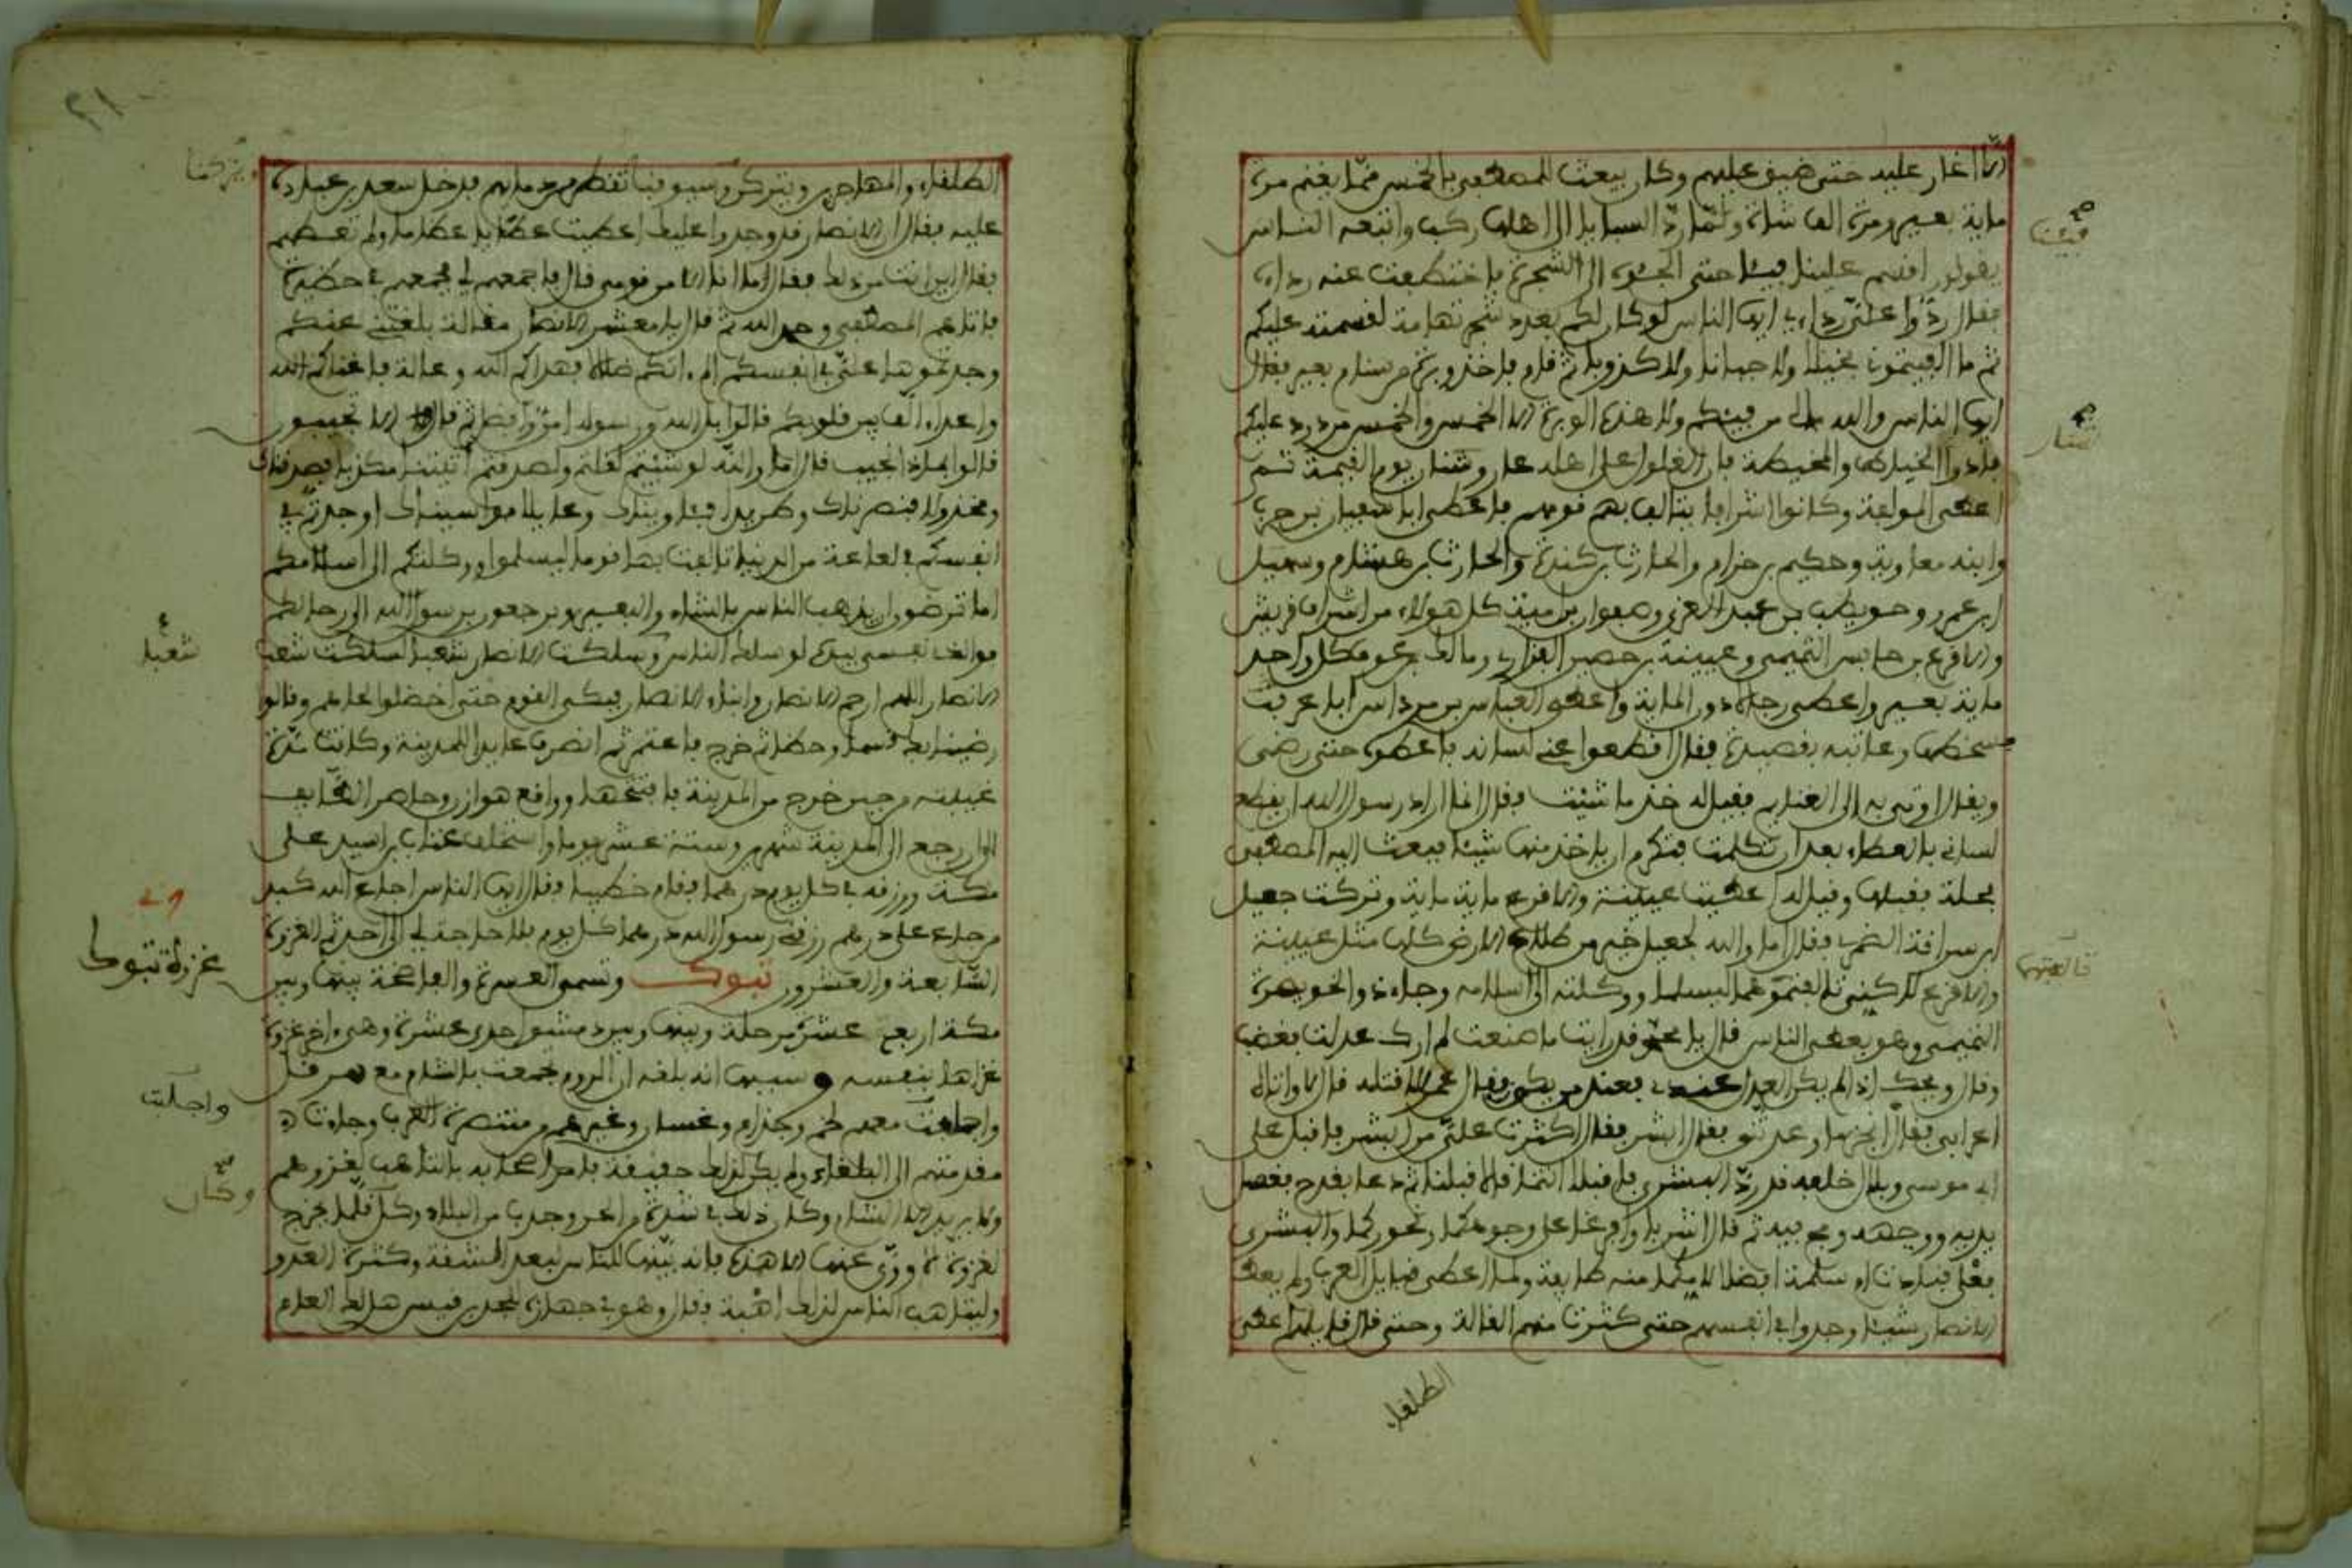 الا اغار عليه حتى ضيق عليهم وكان يبعث للمصطفى بالخمس مما يغنم مرة
ماية بعير ومرة الف شاة ولما رد السبايا الى اهلها ركب واتبعه الناس
يقولون اقسم علينا فيئنا حتى الجئوه الى الشجرة فاختطفت عنه رداءه
فقال ردوا علي ردائي ايها الناس لو كان لكم بعدد شجر تهامة لقسمته عليكم
ثم ما الفيتموني بخيلا ولا جبانا ولا كذوبا ثم قام فاخذ وبرة من سنام بعير فقال
ايها الناس والله مالي من فيئكم ولا هذه الوبرة الا الخمس والخمس مردود عليكم
فادوا الخياط والمخيط فان الغلول على اهله عار وشنار يوم القيمة ثم
اعطى المؤلفة وكانوا اشرافا يتالف بهم قومهم فاعطى ابا سفيان بن حرب
وابنه معاوية وحكيم بن حزام والحارث بن كندة والحارث بن هشام وسهيل
ابن عمرو وحويطب بن عبد العزى وصفوان بن امية كل هولاء من اشراف قريش
والاقرع بن حابس التميمي وعيينة بن حصن الفزاري ومالك بن عوف كل واحد
ماية بعير واعطى رجالا دون الماية واعطى العباس بن مرداس ابا عر فت
سخطها وعاتبه بقصيدة فقال اقطعوا عني لسانه فاعطوه حتى رضي
ويقال اوتي به الى الغنايم فقيل له خذ ما شئت فقال انما اراد رسول الله ان يقطع
لساني بالعطاء بعد ان تكلمت فتكرم ان ياخذ منها شيئا فبعث اليه المصطفى
بحلة فقبلها وقيل له اعطيت عيينة والاقرع ماية ماية وتركت جعيل
ابن سراقة الضمري فقال اما والله لجعيل خير من طلاع الارض كلها مثل عيينة
والاقرع لكني تالفتهما ليسلما ووكلته الى اسلامه وجاء ذو الخويصرة
التميمي وهو يعطي الناس فقال يا محمد قد رايت ما صنعت لم ارك عدلت فغضب
وقال ويحك اذا لم يكن العدل عندي فعند من يكون فقال عمر الا اقتله قال لا واتاه
اعرابي فقال انجز لي ما وعدتني فقال ابشر فقال اكثرت علي من ابشر فاقبل على
ابي موسى وبلال فقال قد رد البشرى فاقبلا انتما قالا قبلنا ثم دعا بقدح فغسل
يديه ووجهه ومج فيه ثم قال اشربا وافرغا على وجوهكما ونحوركما وابشرا
ففعلا فنادت ام سلمة افضلا لامكما منه طايفة ولما اعطى قبايل العرب ولم يعط
الانصار شيئا وجدوا في انفسهم حتى كثرت منهم القالة وحتى قال قايلهم اعطى
الطلقاء
فيئنا
شنار
تالفتهما
٢١
الطلقاء والمهاجرين وتركنا وسيوفنا تقطر من دمايهم فدخل سعد بن عبادة
عليه فقال ان الانصار قد وجدوا عليك اعطيت عطايا عظاما ولم تعطهم
فقال اين انت من ذلك فقال ما انا الا من قومي قال فاجمعهم لي فجمعهم في حظيرة
فاتاهم المصطفى وحمد الله ثم قال يا معشر الانصار مقالة بلغتني عنكم
وجدتموها علي في انفسكم الم اتكم ضلالا فهداكم الله وعالة فاغناكم الله
واعداء فالف بين قلوبكم قالوا بلى الله ورسوله امن وافضل ثم قال الا تجيبون
قالوا بماذا نجيب قال اما والله لو شئتم لقلتم ولصدقتم اتيتنا مكذبا فصدقناك
ومخذولا فنصرناك وطريدا فاويناك وعايلا فواسيناك اوجدتم في
انفسكم في لعاعة من الدنيا تالفت بها قوما ليسلموا ووكلتكم الى اسلامكم
اما ترضون ان يذهب الناس بالشاء والبعير وترجعون برسول الله الى رحالكم
فوالذي نفسي بيده لو سلك الناس وسلكت الانصار شعبا لسلكت شعب
الانصار اللهم ارحم الانصار وابناء الانصار فبكى القوم حتى اخضلوا لحاهم وقالوا
رضينا بك قسما وحظا ثم خرج فاعتمر ثم انصرف عايدا للمدينة وكانت مدة
غيبته من حين خرج من المدينة فافتتحها وواقع هوازن وحاصر الطايف
الى ان رجع الى المدينة شهرين وستة عشر يوما واستخلف عتاب بن اسيد على
مكة ورزقه في كل يوم درهما فقام خطيبا فقال ايها الناس اجاع الله كبد
من جاع على درهم رزقني رسول الله درهما كل يوم فلا حاجة لي الى احد ثم الغزوة
السابعة والعشرون تبوك وتسمى العسرة والفاضحة بينها وبين
مكة اربع عشرة مرحلة وبينها وبين دمشق احدى عشرة وهي اخر غزوة
غزاها بنفسه وسببها انه بلغه ان الروم تجمعت بالشام مع هرقل
واجلبت معهم لخم وجذام وغسان وغيرهم من متنصرة العرب وجاءت
مقدمتهم الى البلقاء ولم يكن لذلك حقيقة فامر اصحابه بالتاهب لغزوهم
ولا يريد الا الشام وكان ذلك في شدة من الحر وجدب من البلاد وكان قلما يخرج
لغزوة الا وورى عنها الا هذه فانه بينها للناس لبعد المشقة وكثرة العدو
وليتاهب الناس لذلك اهبة فقال وهو في جهازه للجد بن قيس هل لك العام
وتركنا
شعبا
غزوة تبوك
واجلبت
وكان